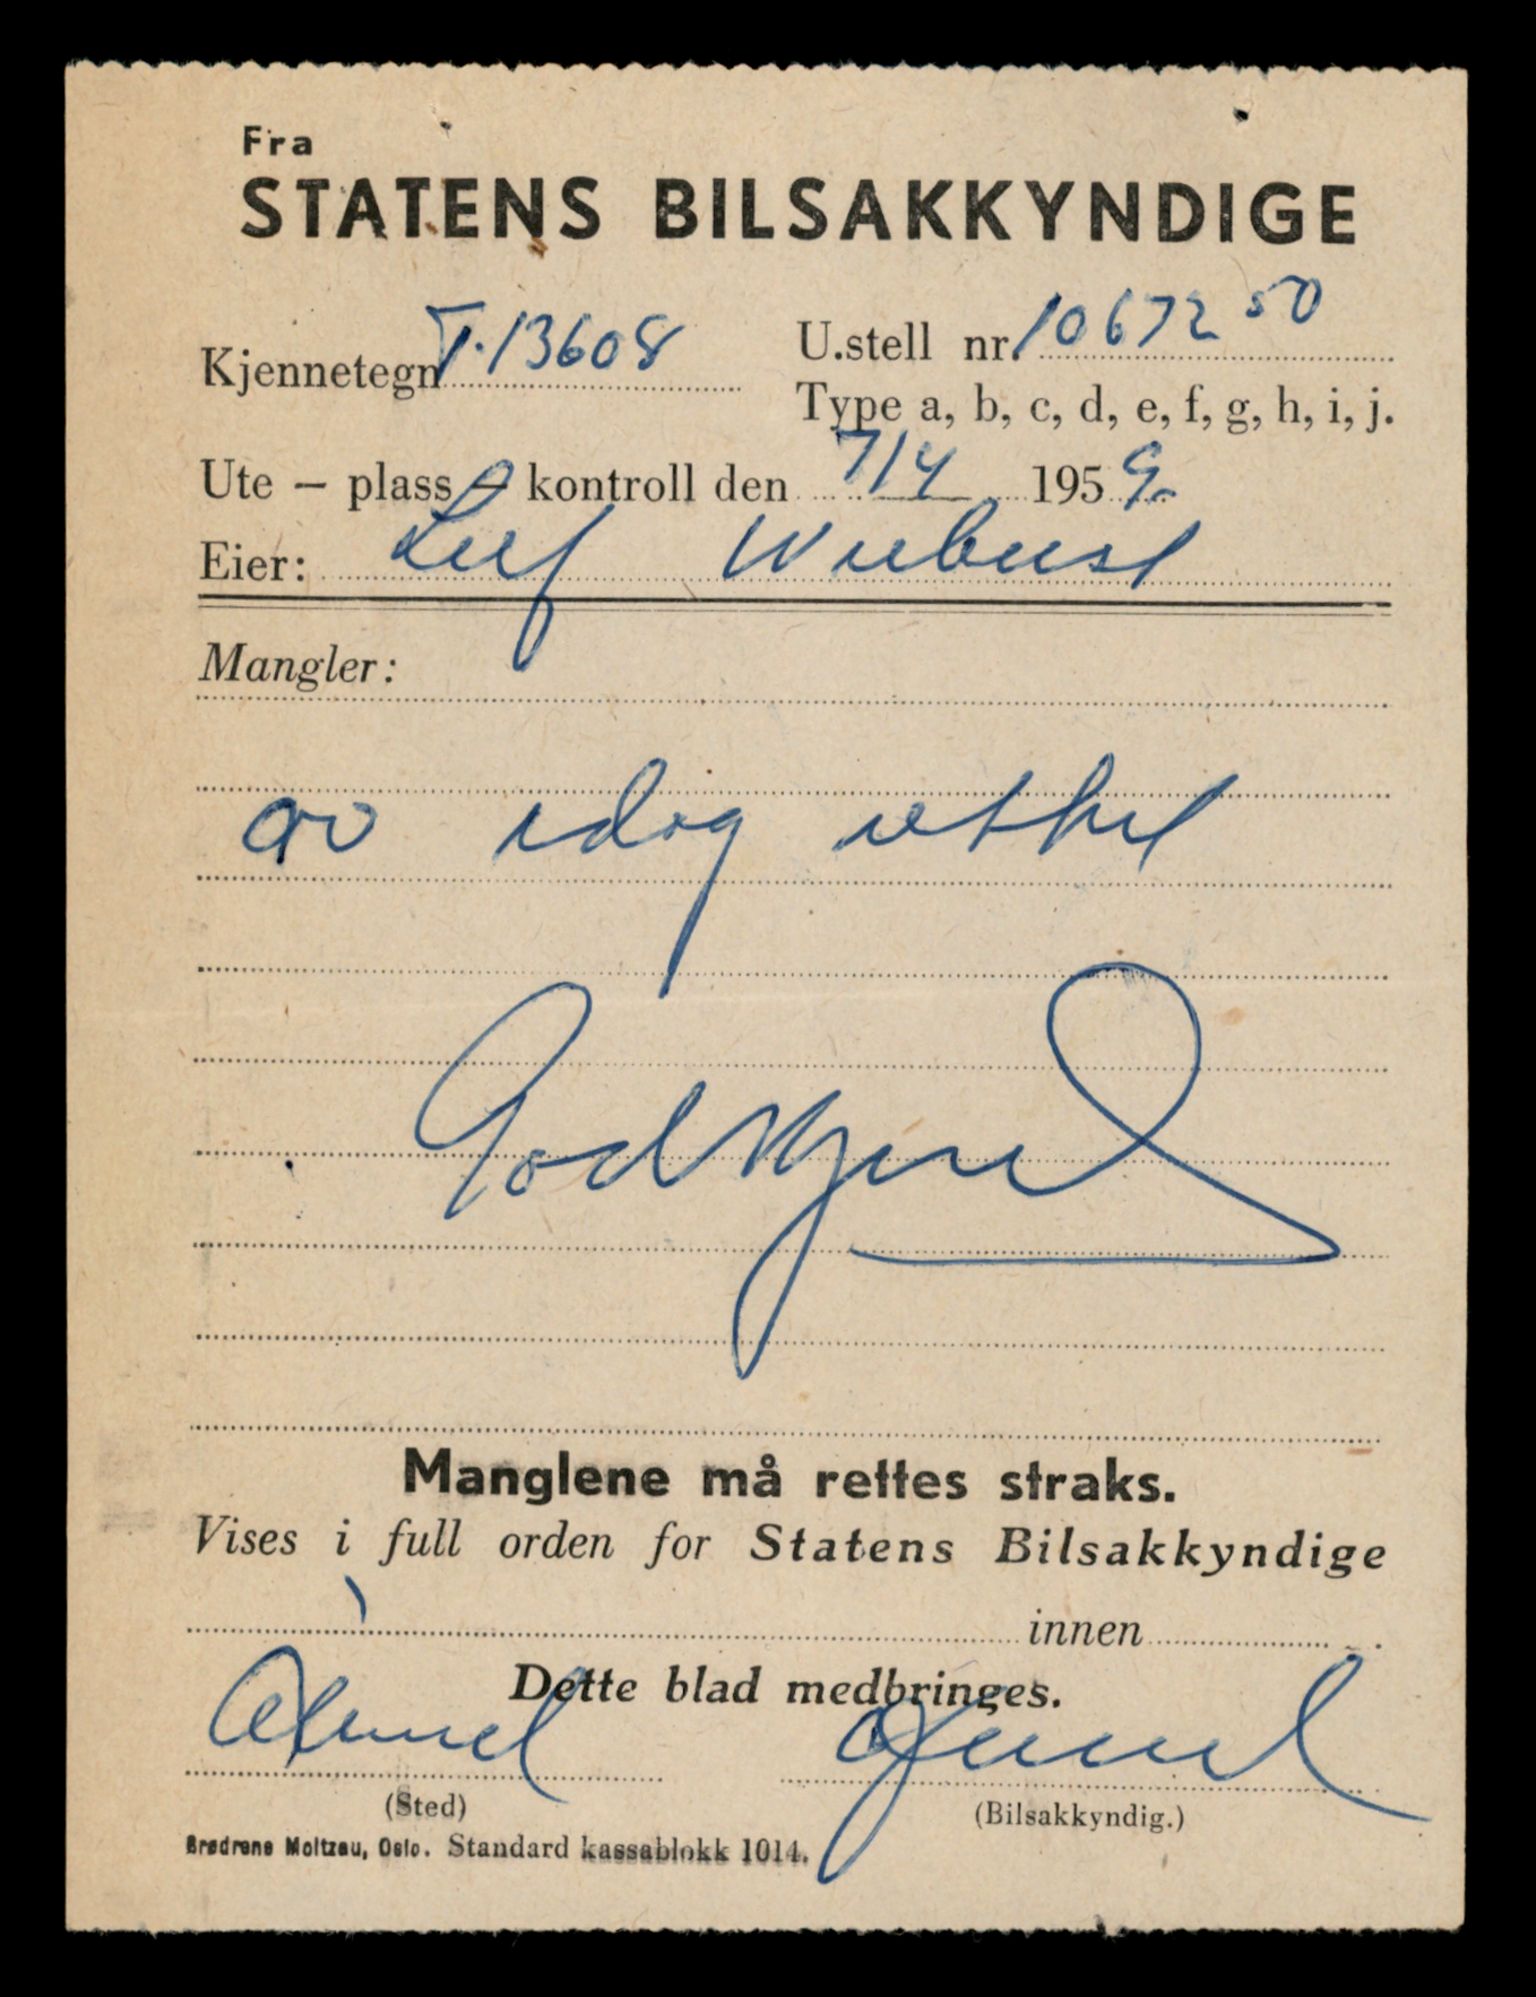 Fra
STATENS BILSAKKYNDIGE
Kjennetegn T.13608
U.stell nr. 1067250
Type a, b, c, d, e, f, g, h, i, j.
Ute – plass – kontroll den 7/4 1959.
Eier: Leif
Mangler:
av idag
Godkjent
Manglene må rettes straks.
Vises i full orden for Statens Bilsakkyndige
innen
Dette blad medbringes.
(Sted)
(Bilsakkyndig.)
Brødrene Moltzau, Oslo. Standard kassablokk 1014.